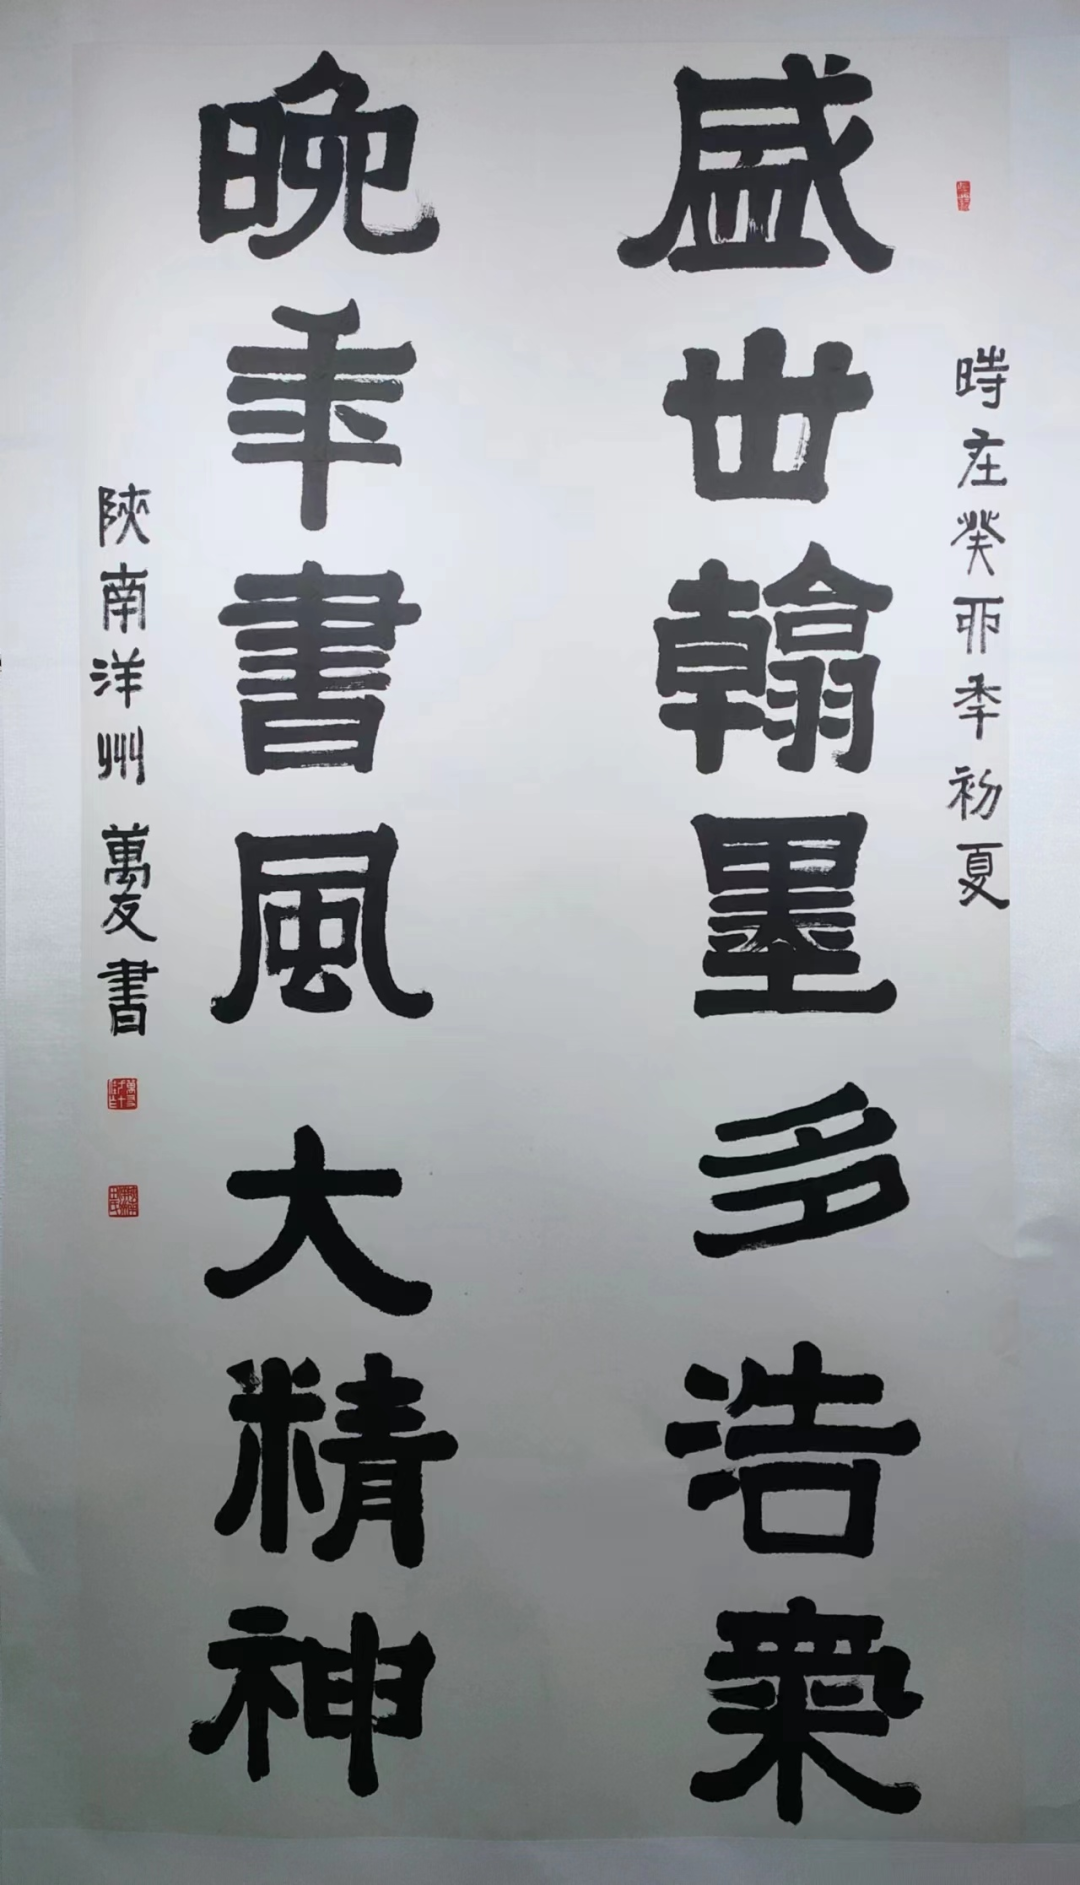 時在癸卯年初夏
盛世翰墨多浩氣
晚年書風大精神
陝南洋州萬友書